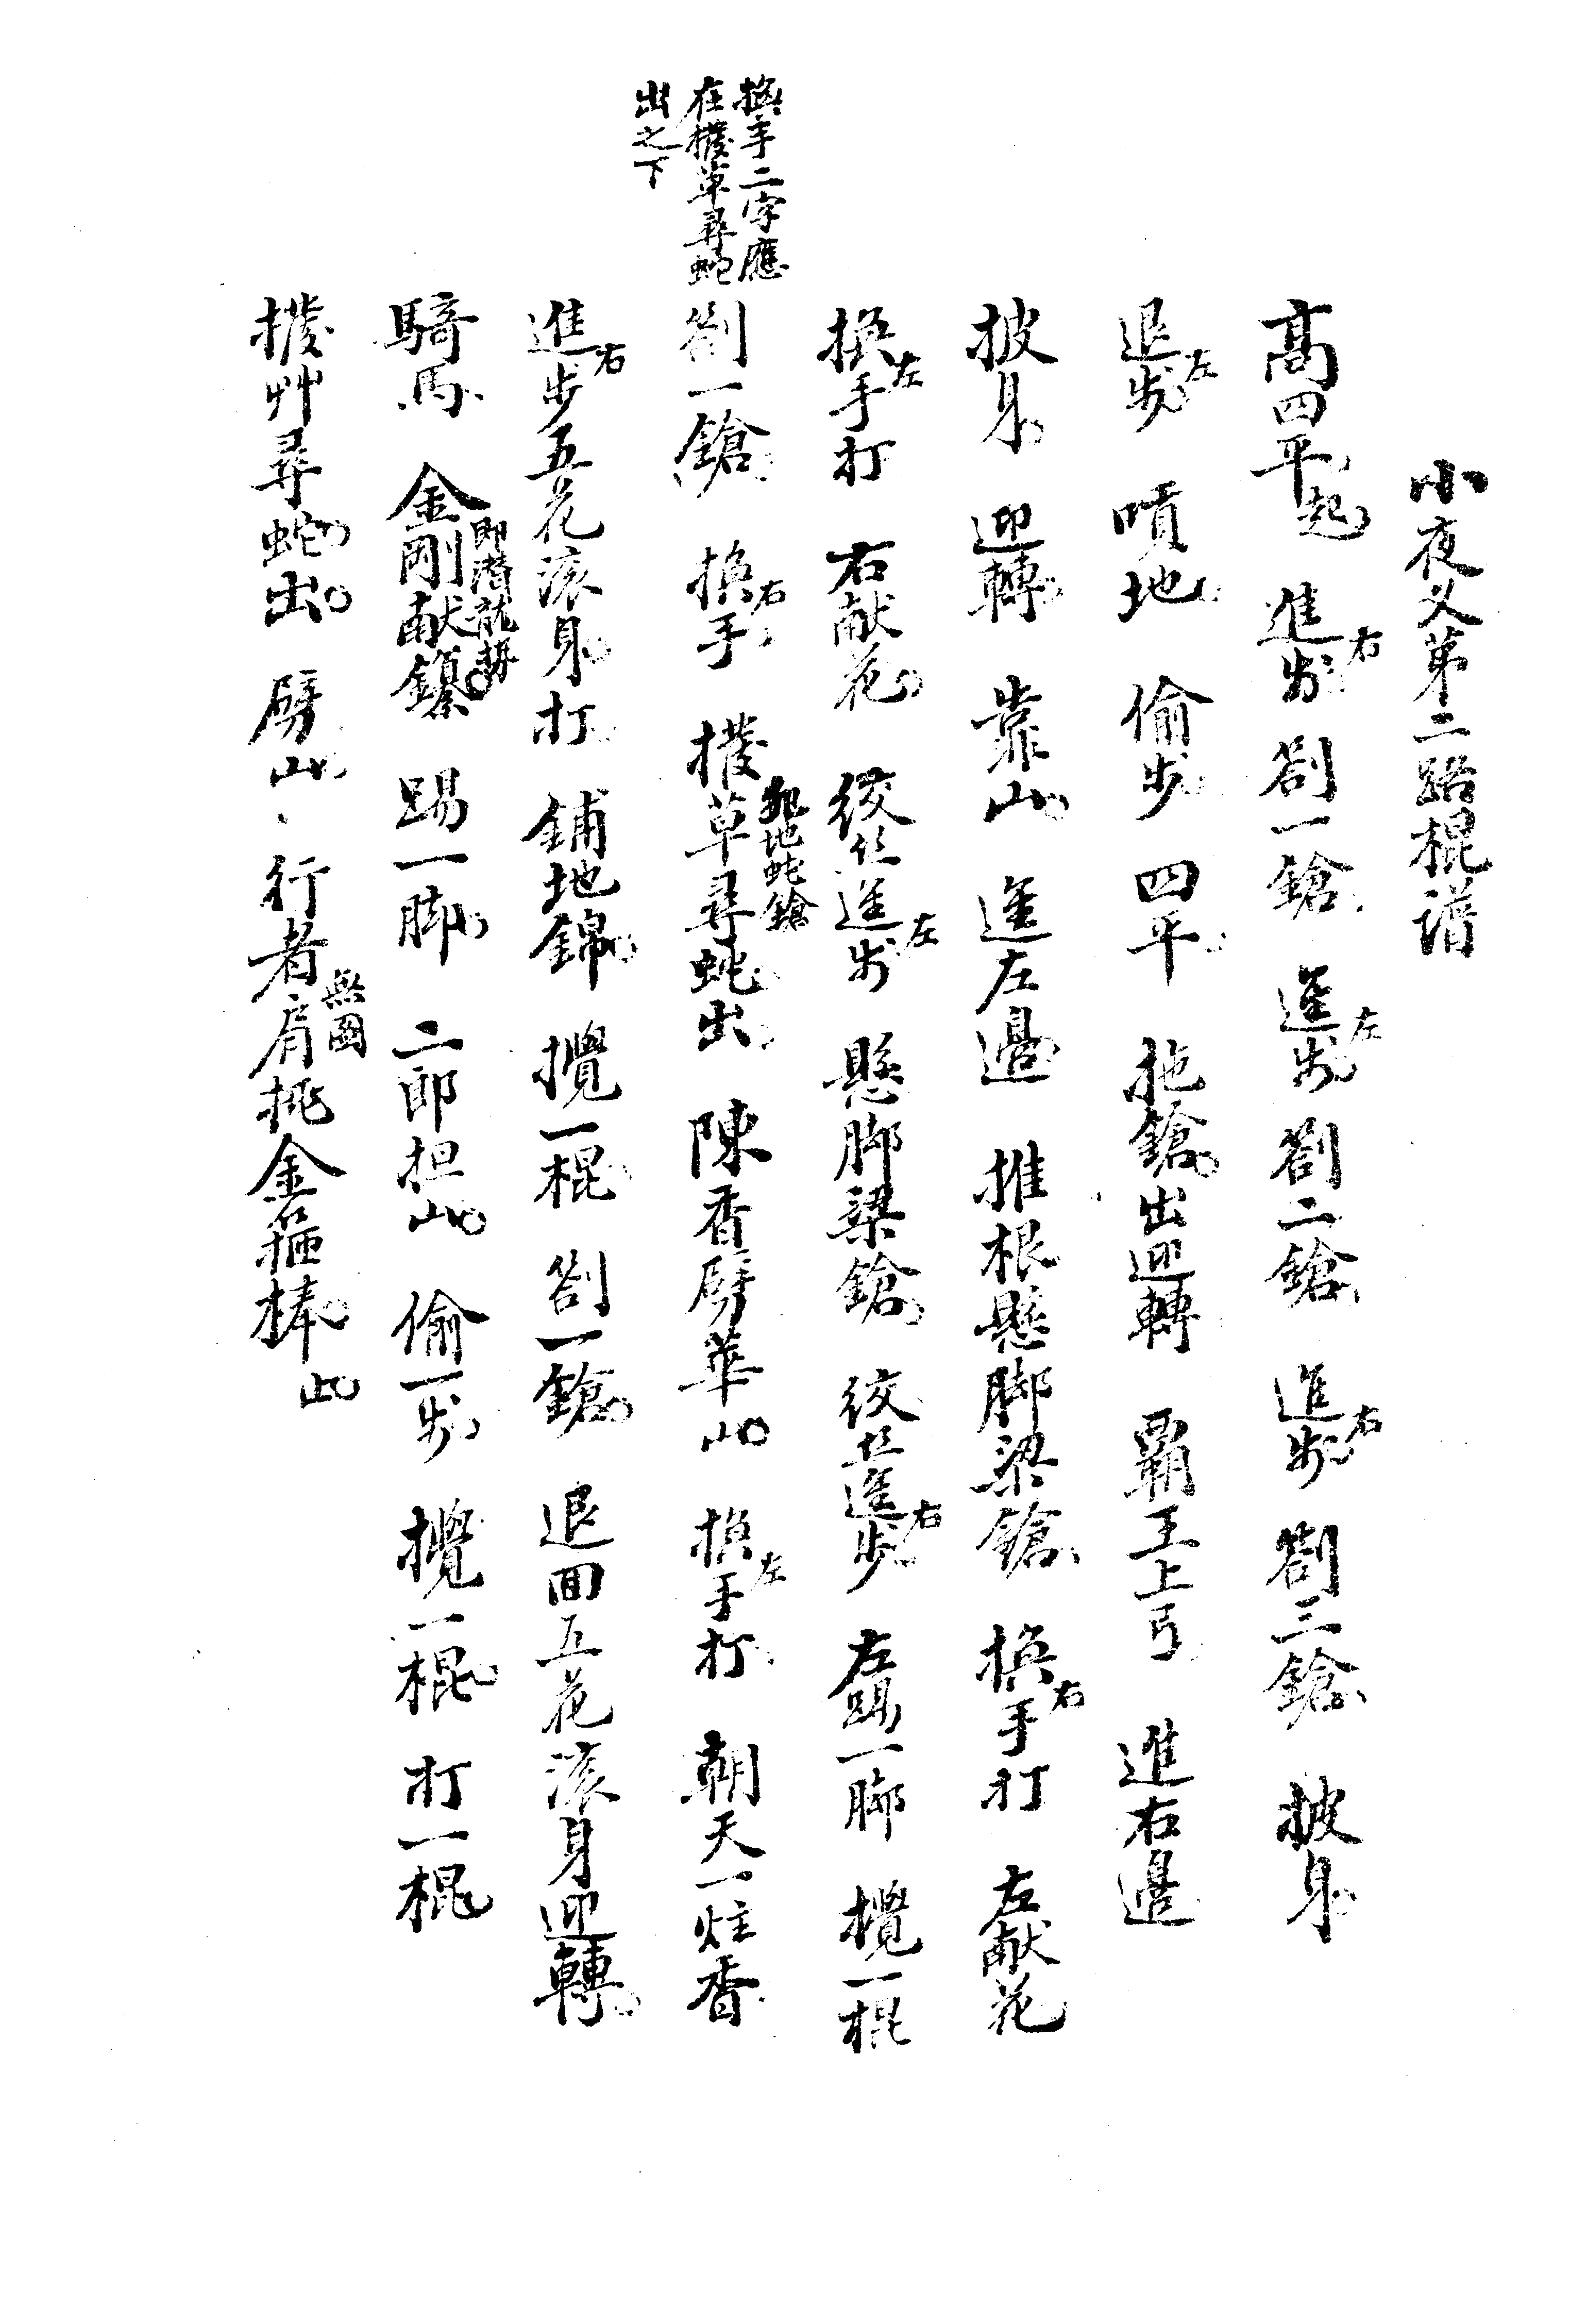 小夜叉第二路棍譜
高四平起 進步右 劄一鎗 進步左 劄二鎗 進步右 劄三鎗 披身
退步左 噴地 偷步 四平 拖鎗出迎轉 霸王上弓 進右邊
披身 迎轉 靠山 進左邊 推根懸脚梁鎗 換手打右 左献花
換手打左 右献花 絞 進步左 懸脚梁鎗 絞 進步右 左踢一脚 攪一棍
換手二字應
在撥草尋蛇
出之下
劄一鎗 換手右 撥草尋蛇出 地蛇鎗 陳香劈華山 換手打左 朝天一炷香
進步右五花滚身打 鋪地錦 攪一棍 劄一鎗 退回五花滚身迎轉
騎馬 金剛献鑽 即潛龍勢 踢一脚 二郎担山 偷一步 攪一棍 打一棍
撥艸尋蛇出 劈山 行者肩挑金箍棒 無圖 止